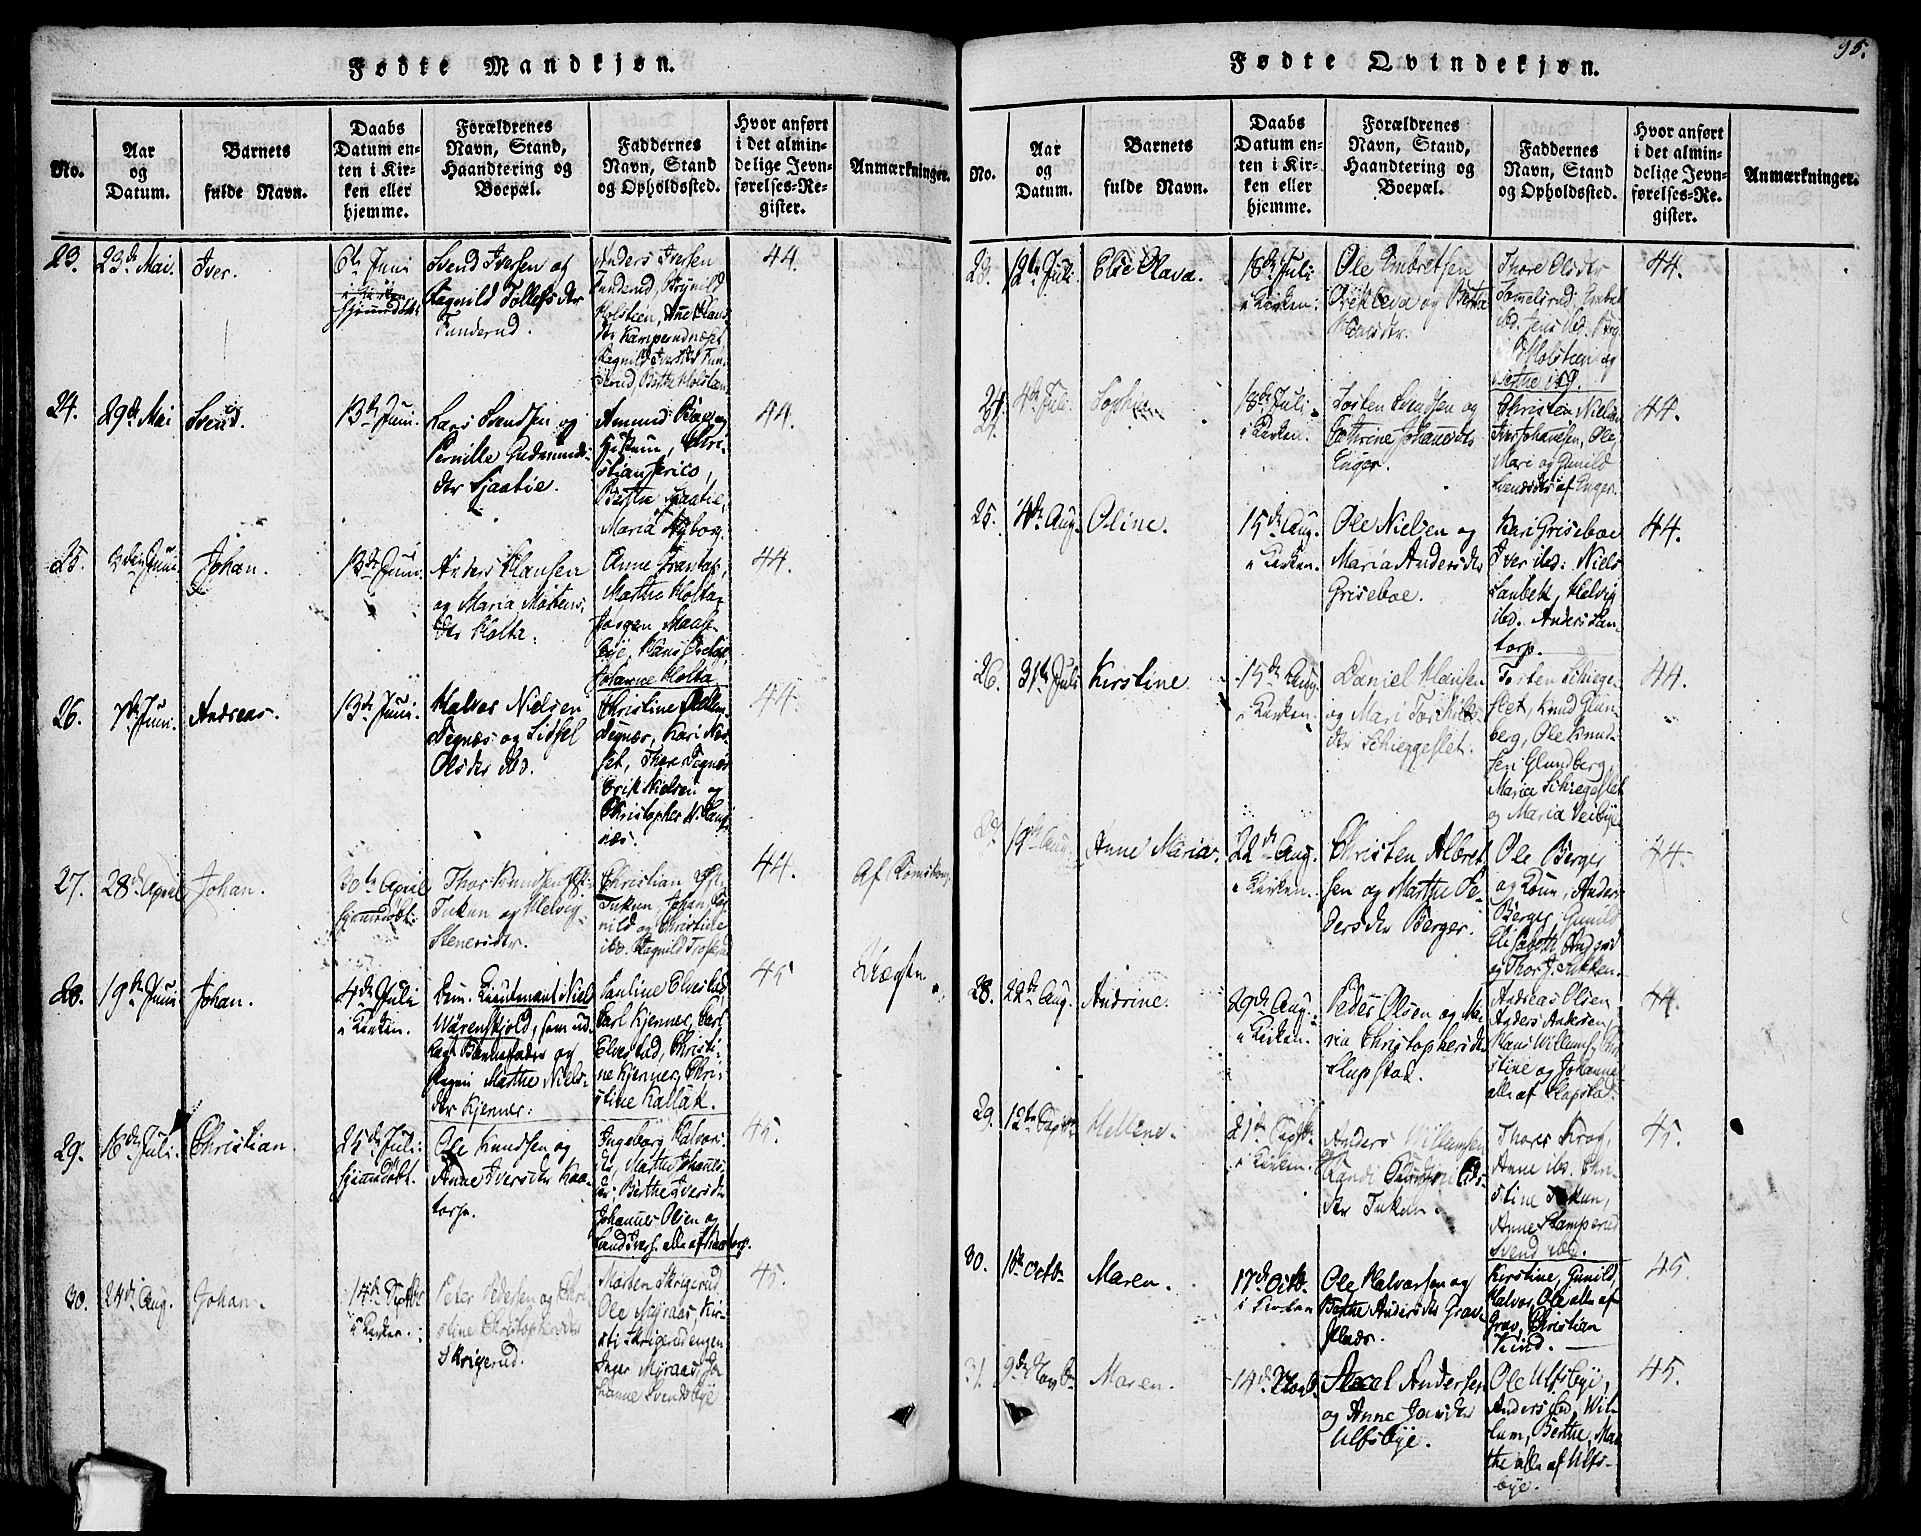 95.
Fødte Mandkjøn.
No.
Aar
og
Datum.
Barnets
fulde Navn.
Daabs
Datum en-
ten i Kir-
ken eller
hjemme.
Forældrenes
Navn, Stand,
Haandtering og
Boepæl.
Faddernes
Navn, Stand
og Opholdssted.
Hvor anført
i det almin-
delige Jevn-
førelses-Re-
gister.
Anmærkninger.
23.
23de Mai.
Iver.
6te Juni
Svend Iversen og
Ragnild Tollefsdtr
Funderud.
Anders Iversen
Funderud,
Holsteen,
44.
24.
29de Mai
Svend.
13de Juni.
Lars Svendsen og
Pernille Gudmunds-
dtr Sjaatie.
Amund
Maria Nyborg.
44.
25.
Juni.
Johan.
13de Juni.
Anders Hansen
og Maria Mortens-
dtr Holta.
Anne
Marthe Holta,
Jørgen
Johanne Holta
44.
26.
7de Juni.
Andreas.
13de Juni.
Halvor Nielsen
Tegnæs og Sidsel
Olsdtr ibd.
Christine
Tegnæs, Kari Næs-
set, Thore Tegnæs
Erik Nielsen og
Christopher
næs.
44.
27.
28de April
Johan.
30te April
hjemmedøbt.
Thor Knudsen
Tukun og Helvig
Stenersdtr.
Christian
Tukun, Johan
og Christine
ibd. Ragnild
44.
Af Rømskoug.
28.
19de Juni
Johan.
4de Juli
i Kirken.
Lieutenant Niels
Wärenskjold, som ud-
lagt Barnefader og
Pigen Marthe Niels-
dtr Kjerner.
Pauline Elvestad,
Carl Kjerner, Carl
Elvestad, Christi-
ne Kjerner, Chri-
stine Kallak.
45
Uægte.
29.
16de Juli.
Christian.
25de Juli.
hjemmedøbt.
Ole Knudsen og
Anne Iversdtr Kaa-
torp.
Ingeborg Halvors-
dtr, Marthe Johannes-
dtr, Berthe Iversdtr
Johannes Olsen og
alle af Kaatorp.
45.
30.
24de Aug.
Johan.
14de Septbr
i Kirken.
Peter Pedersen og Chri-
stine Christophersdtr
Skrigerud.
Morten Skrigerud
Ole Myraas, Kir-
sti Skrigerudengen
Inger Myraas, Jo-
hanne Svendsbye
45.
Fødte Qvindekjøn.
No.
Aar
og
Datum.
Barnets
fulde Navn.
Daabs
Datum en-
ten i Kir-
ken eller
hjemme.
Forældrenes
Navn, Stand,
Haandtering og
Boepæl.
Faddernes
Navn, Stand
og Opholdssted.
Hvor anført
i det almin-
delige Jevn-
førelses-Re-
gister.
Anmærkninger.
23.
12te Juli
Else Olava.
18de Juli
i Kirken.
Ole Embretsen
og Berthe
Hansdtr.
Thore Olsdtr
Holsteen og
Berthe ibd.
44.
24.
24.
4de Juli.
Sophie
18de Juli.
i Kirken.
Torsten Svendsen og
Cathrine Johannesdtr
Enger.
Christen Nielsen
Iver Johansen, Ole,
Mari og Gunild
Svendsdtr af Enger.
44.
25.
4de Aug.
Oline.
15de Aug.
i Kirken.
Ole Nielsen og
Maria Andersdtr
Griseboe.
Kari Griseboe
Iver ibd: Niels
Sanbek, Helvig
ibd. Anders San-
torp.
44.
26.
31te Juli
Kirstine.
15de Aug.
i Kirken.
Daniel Hansen
og Mari Torkils-
dtr Schieggeslet.
Torsten Schiege-
slet, Knud Glun-
berg, Ole Knud-
sen Glundberg,
Maria Schiegeslet
og Maria Veibye
44.
27.
19de Aug.
Anne Maria.
22de Aug.
i Kirken.
Christen Albret-
sen og Marthe Pe-
dersdtr Berger.
Ole Berger
og Kone, Anders
Berger, Gunild
Elisabeth
og Thor J. Sukken.
44.
28.
22de Aug.
Andrine.
29de Aug.
i Kirken.
Peder Olsen og Ma-
ria Christophersdtr
Slupstad.
Andreas Olsen,
Anders Andersen,
Hans Willumsen, Chri-
stine og Johanne
alle af Slupstad.
44.
29.
12te Septbr
Hellene.
21de Septbr.
i Kirken.
Anders Willumsen
Randi
dtr Tukun.
Thores Krog,
Anne ibd. Chri-
stine Tukun,
Anne Kamperud
Svend ibd.
45.
30.
16de Octbr
Maren.
17de Octbr.
i Kirken
Ole Halvorsen og
Berthe Andersdtr Grav-
plads.
Kirstine, Gunild,
Halvor, Ole alle af
Grav, Christian
Kind.
45.
31.
9de Novbr
Maren.
14de Novb.
Axel Andersen
og Anne Jansdtr
Ulfsbye.
Ole Ulfsbye,
Anders ibd, Wil-
lum, Berthe, Mar-
the alle af Ulfs-
bye.
45.